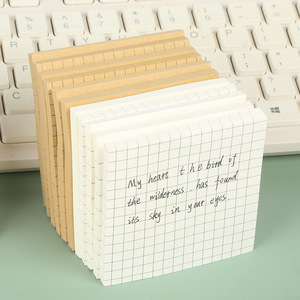 My heart the bird of
the wilderness has found
its sky in your eyes.